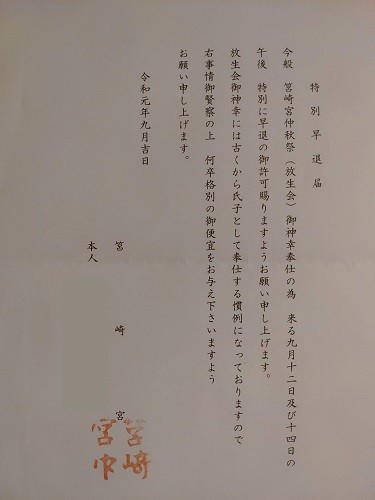 特別早退届
今般 筥崎宮仲秋祭（放生会）御神幸奉仕の為 来る九月十二日及び十四日の
午後 特別に早退の御許可賜りますようお願い申し上げます。
放生会御神幸には古くから氏子として奉仕する慣例になっておりますので
右事情御賢察の上 何卒格別の御便宜をお与え下さいますよう
お願い申し上げます。
令和元年九月吉日
筥崎宮
本人
筥崎
宮印